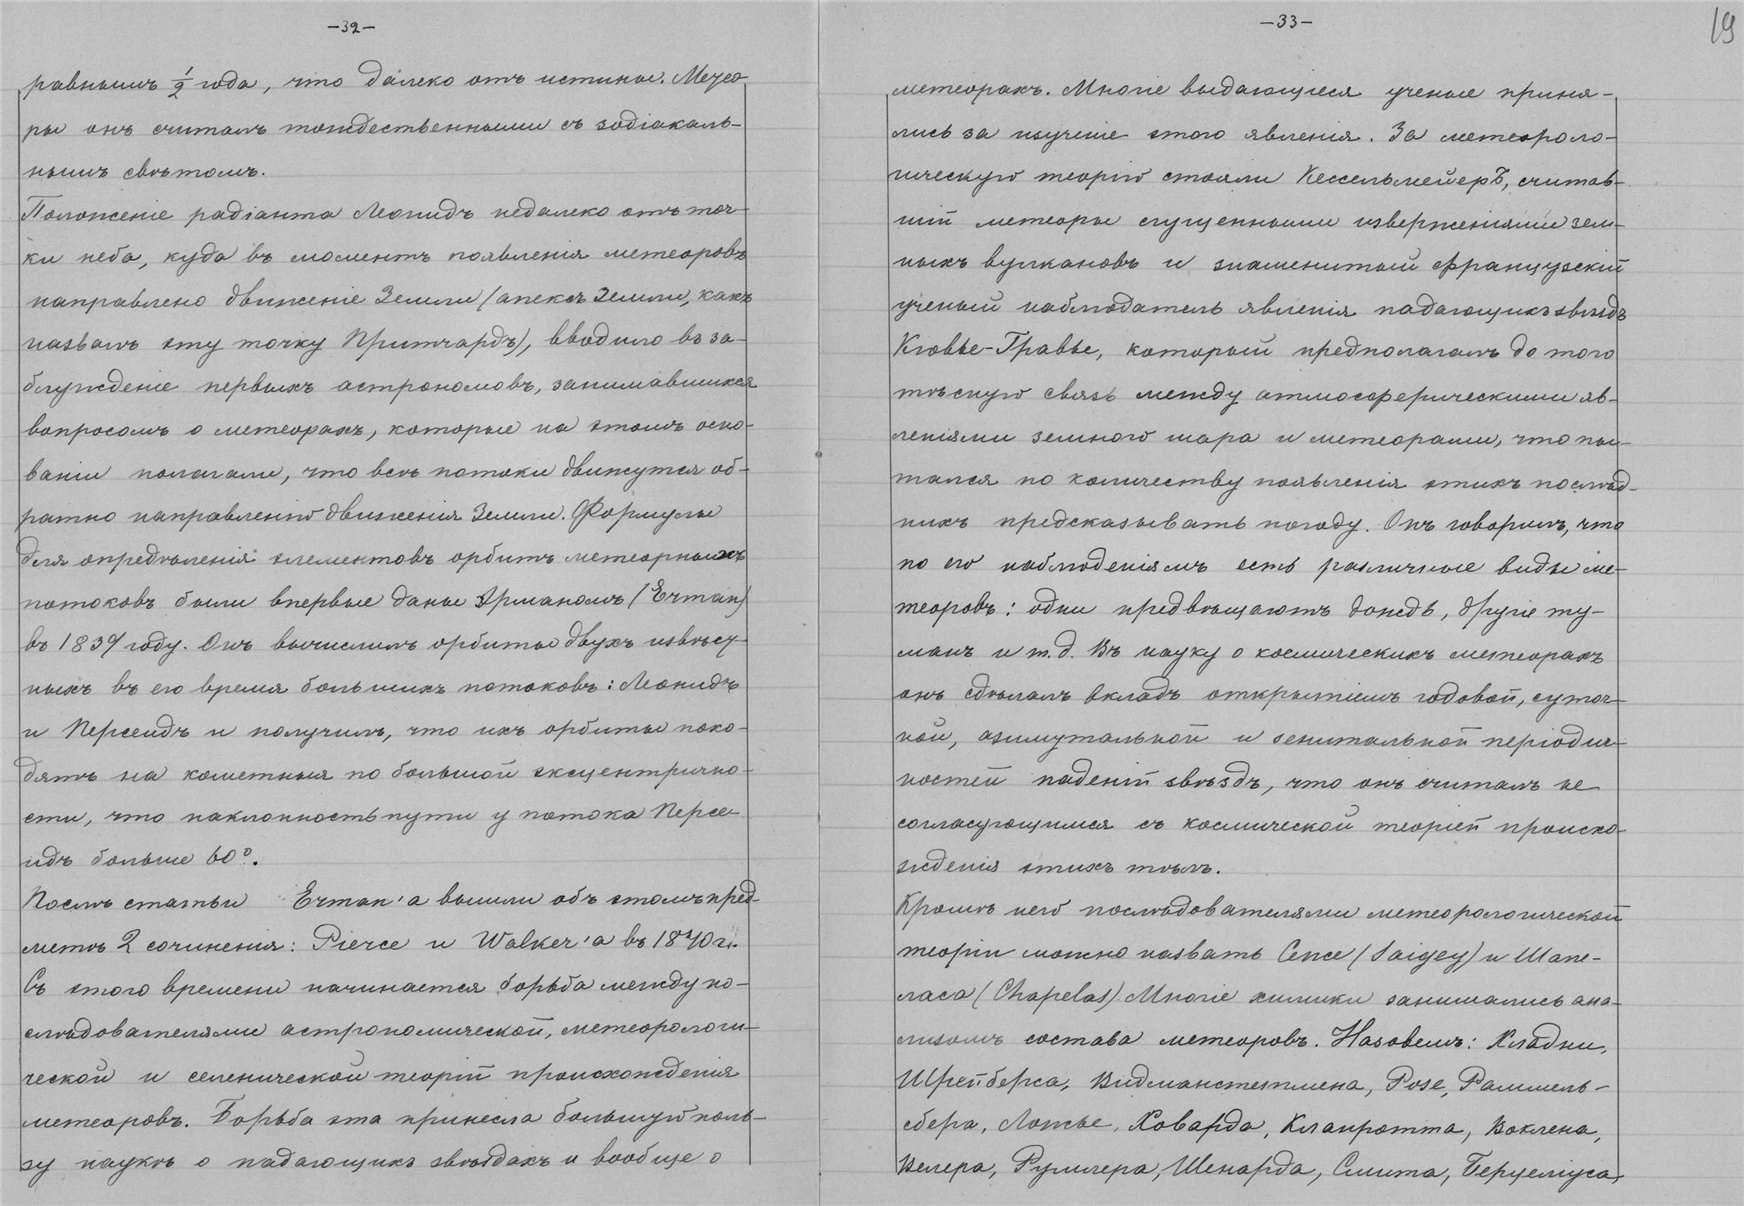 -32-
равнымъ 1/2 года, что далеко отъ истины. Метео
ры онъ считалъ тождественными съ зодіакаль-
нымъ свѣтомъ.
Положеніе радіанта Леонидъ недалеко отъ точ-
ки неба, куда въ моментъ появленія метеоровъ
направлено движеніе Земли (апексъ Земли, какъ
назвалъ эту точку Притчардъ), вводило въ за-
блужденіе первыхъ астрономовъ, занимавшихся
вопросомъ о метеорахъ, которые на этомъ осно-
ваніи полагали, что всѣ потоки движутся об-
ратно направленію движенія Земли. Формулы
для опредѣленія элементовъ орбитъ метеорныхъ
потоковъ были впервые даны Эрманомъ (Erman)
въ 1839 году. Онъ вычислилъ орбиты двухъ извѣст
ныхъ въ его время большихъ потоковъ: Леонидъ
и Персеидъ и получилъ, что ихъ орбиты похо-
дятъ на кометныя по большой эксцентрично-
сти, что наклонность пути у потока Персе-
идъ больше 60°.
Послѣ статьи Erman'а вышли объ этомъ пред-
метѣ 2 сочиненія: Pierce и Walker'а въ 1840 г.
Съ этого времени начинается борьба между по-
слѣдователями астрономической, метеорологи-
ческой и селенической теорій происхожденія
метеоровъ. Борьба эта принесла большую поль-
зу наукѣ о падающихъ звѣздахъ и вообще о
-33-
19
метеорахъ. Многіе выдающіеся ученые приня-
лись за изученіе этого явленія. За метеороло-
гическую теорію стояли Кессельмейеръ, считав-
шій метеоры сгущенными изверженіями зем-
ныхъ вулкановъ и знаменитый французскій
ученый наблюдатель явленія падающихъ звѣздъ
Кювье-Гравье, который предполагалъ до того
тѣсную связь между атмосферическими яв-
леніями земного шара и метеорами, что пы-
тался по количеству появленія этихъ послѣд-
нихъ предсказывать погоду. Онъ говоритъ, что
по его наблюденіямъ есть различные виды ме-
теоровъ: одни предвѣщаютъ дождь, другіе ту-
манъ и т.д. Въ науку о космическихъ метеорахъ
онъ сдѣлалъ вкладъ открытіемъ годовой, суточ-
ной, азимутальной и зенитальной періодич-
ностей паденій звѣздъ, что онъ считалъ не
согласующимся съ космической теоріей происхо-
жденія этихъ тѣлъ.
Кромѣ него послѣдователями метеорологической
теоріи можно назвать Сепсе (Saigey) и Шапе-
ласа (Chapelas) Многіе химики занимались ана-
лизомъ состава метеоровъ. Назовемъ: Хладни,
Шрейберса, Видманстеттена, Розе, Раммель-
сберга, Ложье, Ховарда, Клапротта, Воклена,
Велера, Румлера, Шепарда, Смита, Берцеліуса,